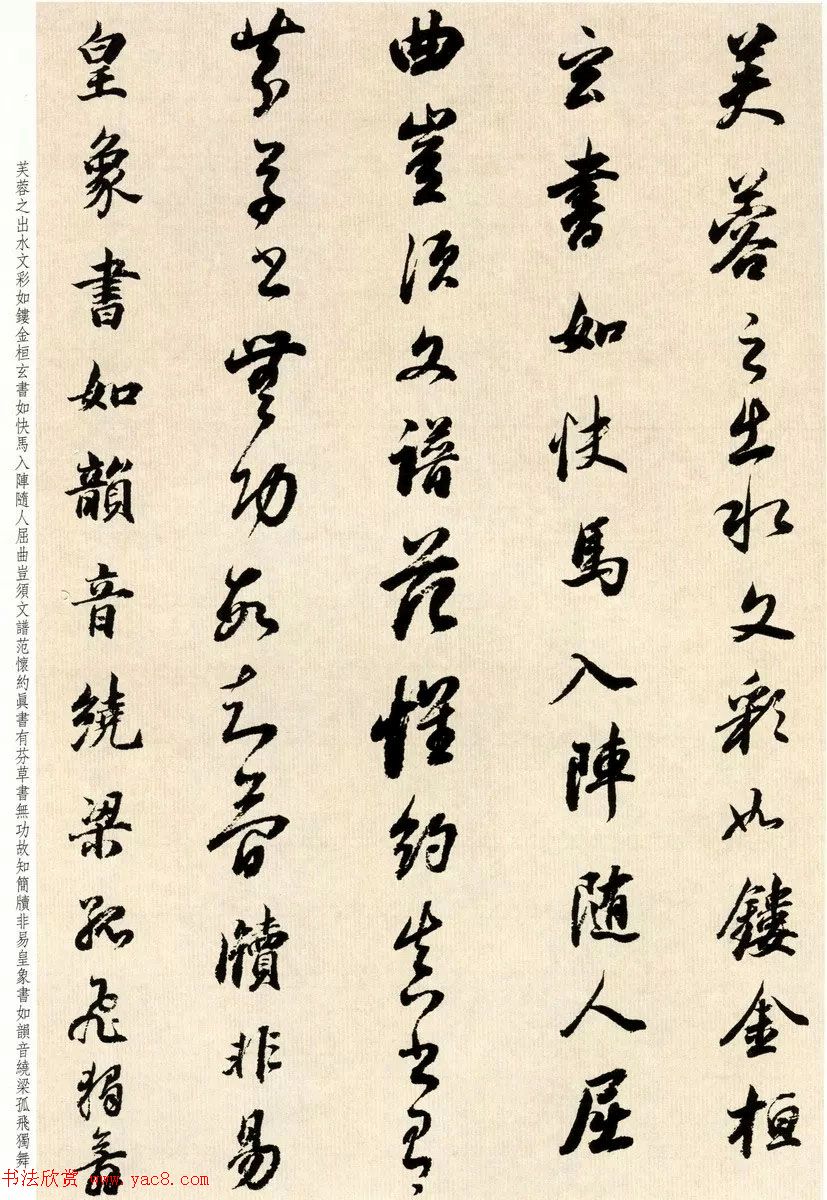 芙蓉之出水文彩如鏤金桓
玄書如快馬入陣随人屈
曲豈須文譜范懷約真書有
芬草書無功故知簡牘非易
皇象書如韻音繞梁孤飛獨舞
芙蓉之出水文彩如鏤金桓玄書如快馬入陣隨人屈曲豈須文譜范懷約眞書有芬草書無功故知簡牘非易皇象書如韻音繞梁孤飛獨舞
书法欣赏 www.yac8.com